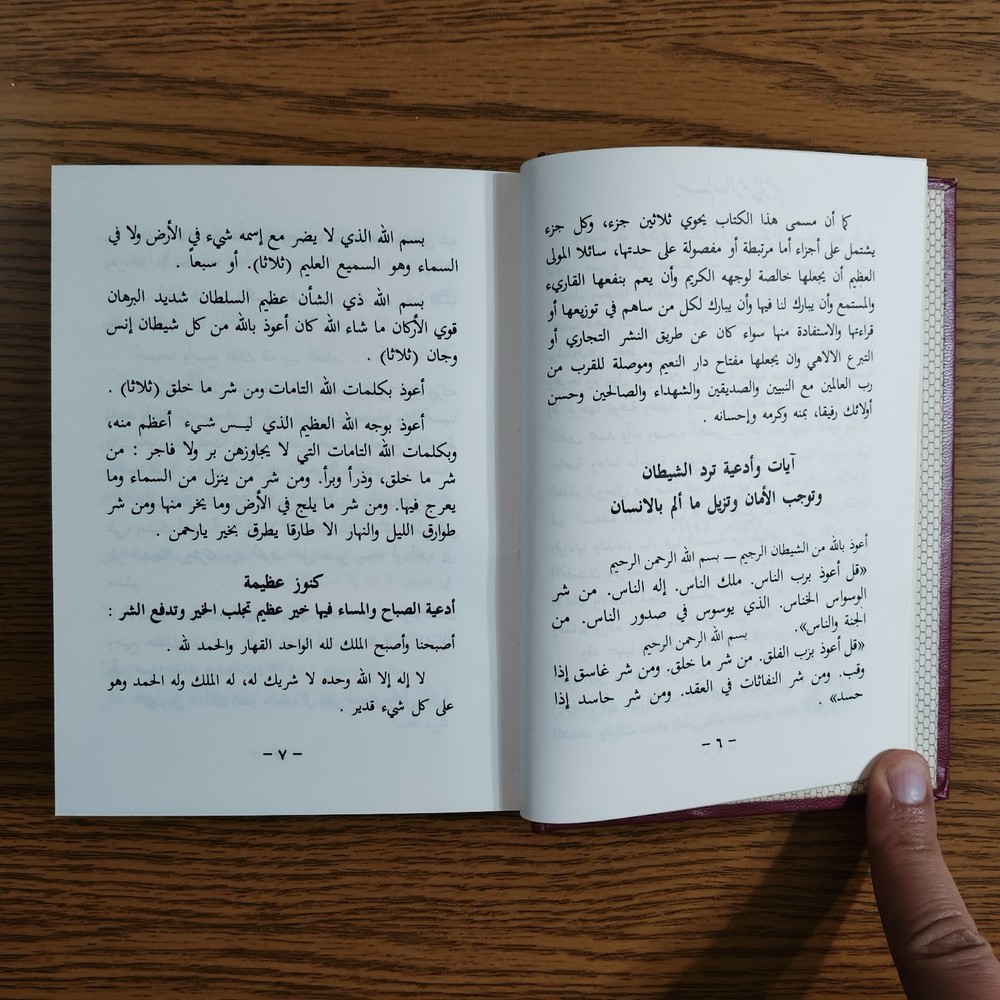 كما أن مسمى هذا الكتاب يحوي ثلاثين جزء، وكل جزء
يشتمل على أجزاء أما مرتبطة أو مفصولة على حدتها، سائلا المولى
العظيم أن يجعلها خالصة لوجهه الكريم وأن يعم بنفعها القاريء
والمستمع وأن يبارك لنا فيها وأن يبارك لكل من ساهم في توزيعها أو
قراءتها والاستفادة منها سواء كان عن طريق النشر التجاري أو
التبرع الالاهي وان يجعلها مفتاح دار النعيم وموصلة للقرب من
رب العالمين مع النبيين والصديقين والشهداء والصالحين وحسن
أولائك رفيقا، بمنه وكرمه وإحسانه .
آيات وأدعية ترد الشيطان
وتوجب الأمان وتزيل ما ألم بالانسان
أعوذ بالله من الشيطان الرجيم ــ بسم الله الرحمن الرحيم
«قل أعوذ برب الناس. ملك الناس. إله الناس. من شر
الوسواس الخناس. الذي يوسوس في صدور الناس. من
الجنة والناس».
بسم الله الرحمن الرحيم
«قل أعوذ بزب الفلق. من شر ما خلق. ومن شر غاسق إذا
وقب. ومن شر النفاثات في العقد. ومن شر حاسد إذا
حسد» .
– ٦ –
بسم الله الذي لا يضر مع إسمه شيء في الأرض ولا في
السماء وهو السميع العليم (ثلاثا). أو سبعاً .
بسم الله ذي الشأن عظيم السلطان شديد البرهان
قوي الأركان ما شاء الله كان أعوذ بالله من كل شيطان إنس
وجان (ثلاثا) .
أعوذ بكلمات الله التامات ومن شر ما خلق (ثلاثا) .
أعوذ بوجه الله العظيم الذي ليس شيء أعظم منه،
وبكلمات الله التامات التي لا يجاوزهن بر ولا فاجر : من
شر ما خلق، وذرأ وبرأ. ومن شر من ينزل من السماء وما
يعرج فيها. ومن شر ما يلج في الأرض وما يخر منها ومن شر
طوارق الليل والنهار الا طارقا يطرق بخير يارحمن .
كنوز عظيمة
أدعية الصباح والمساء فيها خير عظيم تجلب الخير وتدفع الشر :
أصبحنا وأصبح الملك لله الواحد القهار والحمد لله .
لا إله إلا الله وحده لا شريك له، له الملك وله الحمد وهو
على كل شيء قدير .
– ٧ –